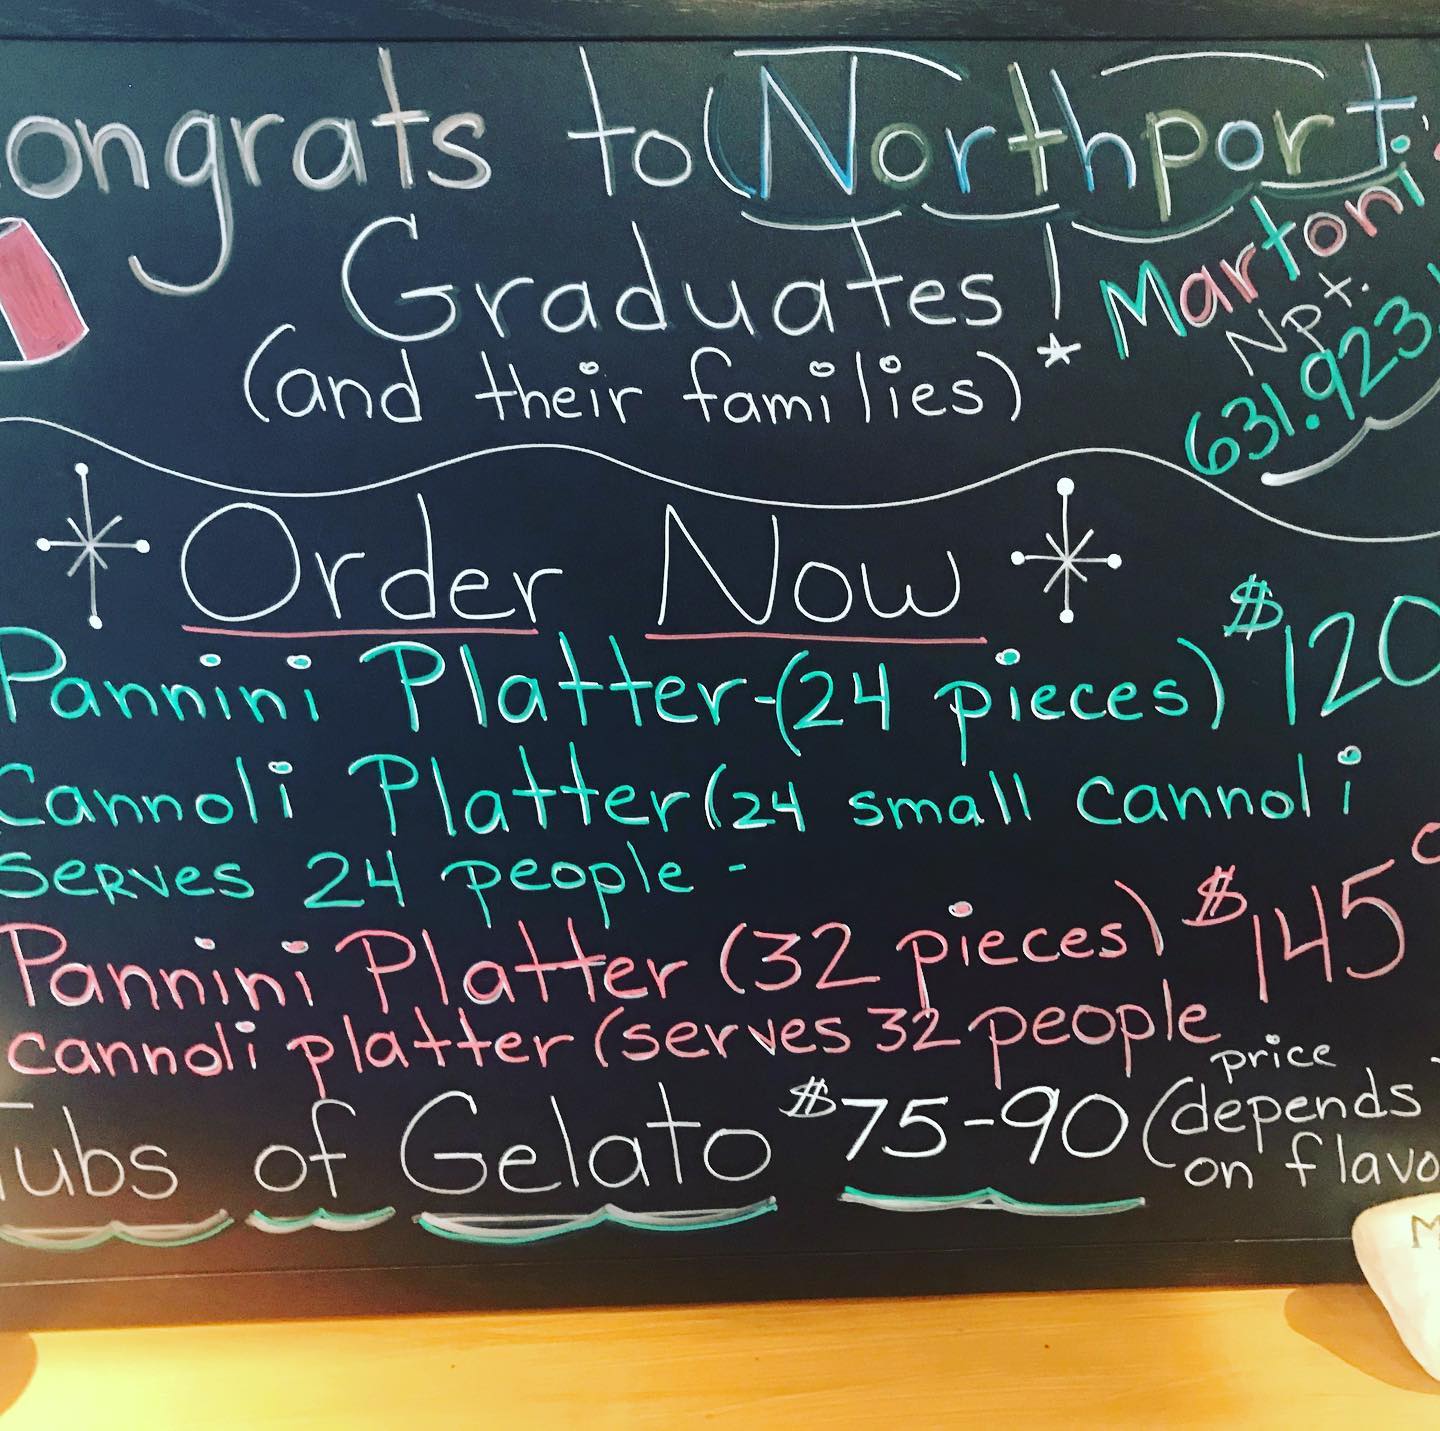 ongrats to Northport
Graduates!
(and their families)*
Martoni
Npt.
631.923.
Order Now
Pannini Platter-(24 pieces) $120
Cannoli Platter (24 small cannoli
serves 24 people -
Pannini Platter (32 pieces) $145
cannoli platter (serves 32 people
Tubs of Gelato $75-90 (price
depends
on flavo